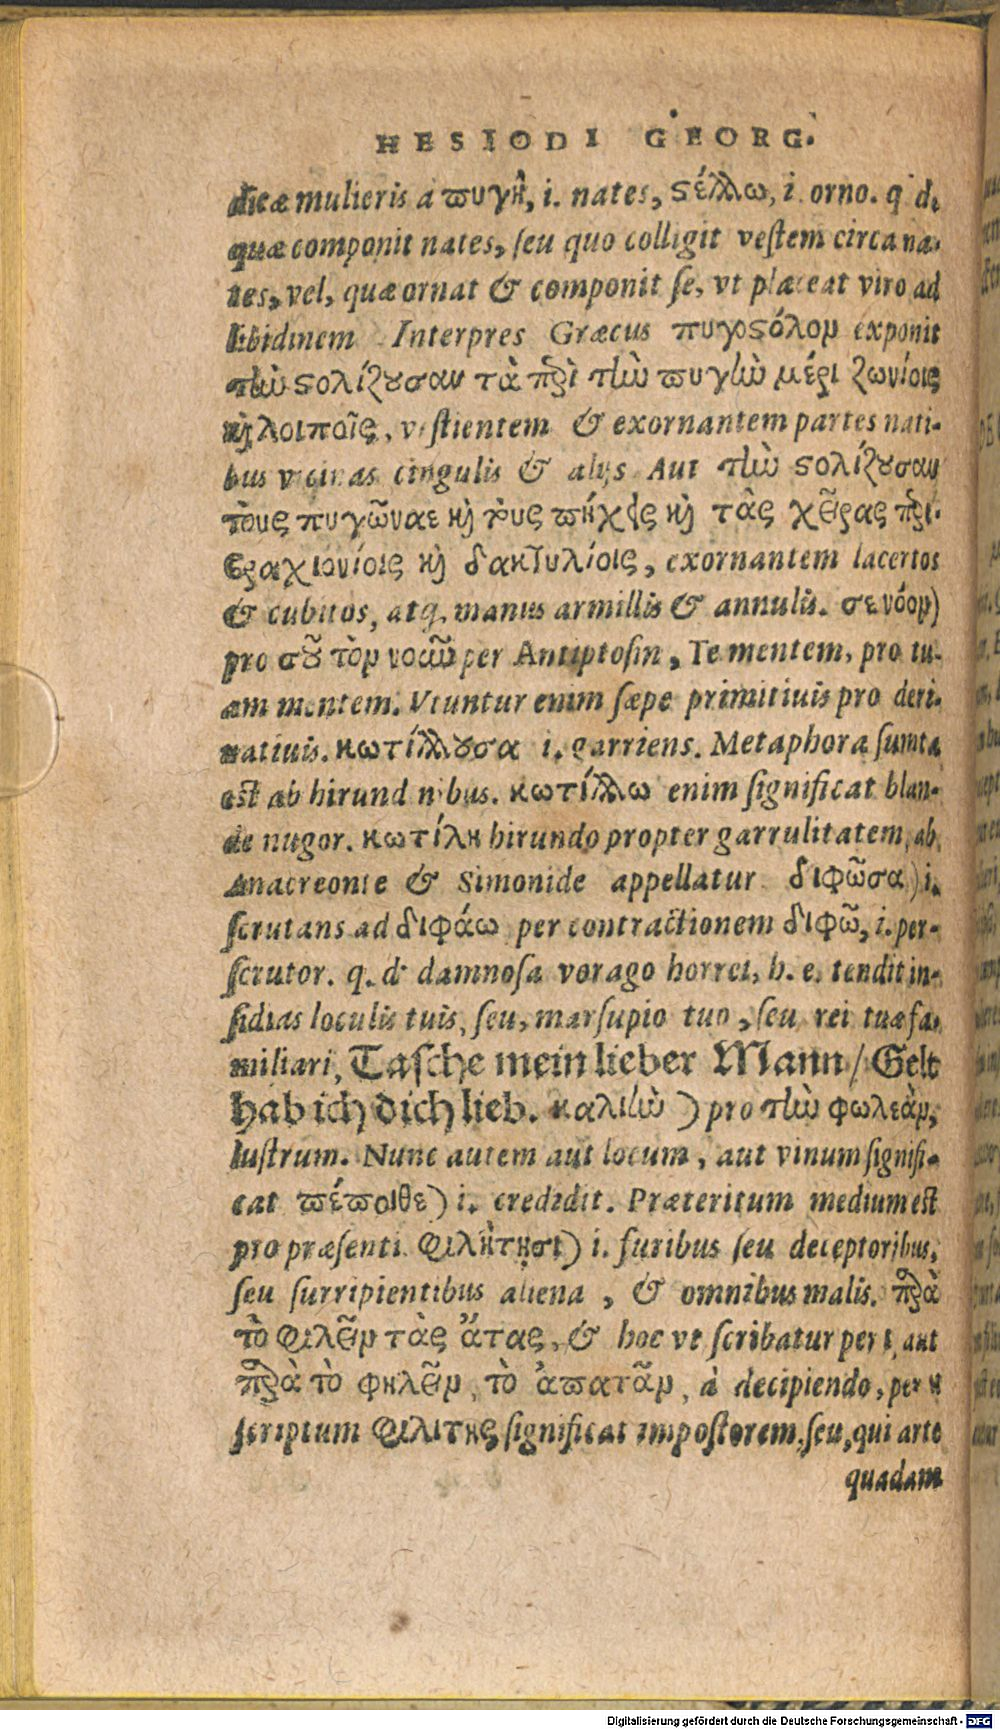 HESIODI GEORG.
dicæ mulieris a πυγὴ, i. nates, στέλλω, i. orno. q d.
quæ componit nates, seu quo colligit vestem circa na-
tes, vel, quæ ornat & componit se, vt placeat viro ad
libidinem Interpres Græcus πυγοστόλον exponit
τὴν στολίζουσαν τὰ περὶ τὴν πυγὴν μέρη ζωνίοις
καὶ λοιποῖς, vestientem & exornantem partes nati-
bus vicinas cingulis & alijs Aut τὴν στολίζουσαν
τοὺς πυγῶνας καὶ τοὺς πήχεις καὶ τὰς χεῖρας περι-
βραχιονίοις καὶ δακτυλίοις, exornantem lacertos
& cubitos, atq, manus armillis & annulis. σε νόον)
pro σοῦ τὸν νοῶν per Antiptosin, Te mentem, pro tu-
am mentem. Vtuntur enim sæpe primitiuis pro deri-
uatiuis. κωτίλλουσα i. garriens. Metaphora sumta
est ab hirundinibus. κωτίλλω enim significat blan-
de nugor. κωτίλη hirundo propter garrulitatem, ab
Anacreonte & Simonide appellatur διφῶσα) i.
scrutans ad διφάω per contractionem διφῶ, i. per-
scrutor. q. d. damnosa vorago horret, h. e. tendit in-
sidias loculis tuis, seu, marsupio tuo, seu rei tuæ fa-
miliari, Tasche mein lieber Mann / Gelt
hab ich dich lieb. καλιὴν) pro τὴν φωλεὰν,
lustrum. Nunc autem aut locum, aut vinum signifi-
cat πέποιθε) i. credidit. Præteritum medium est
pro præsenti. φιλήτῃσι) i. furibus seu deceptoribus,
seu surripientibus aliena, & omnibus malis. παρὰ
τὸ φιλεῖν τὰς ἄτας, & hoc vt scribatur per ι, aut
παρὰ τὸ φηλεῖν, τὸ ἀπατᾶν, à decipiendo, per η
scriptum φιλιτης significat impostorem, seu, qui arte
quadam
Digitalisierung gefördert durch die Deutsche Forschungsgemeinschaft - DFG